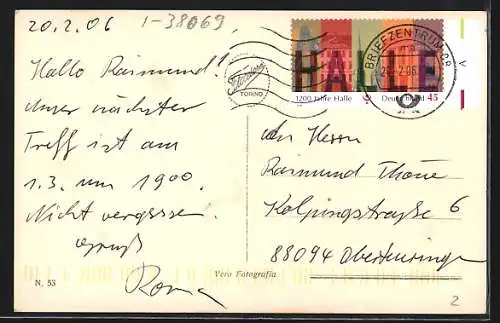 20.2.06
1-38069
Hallo Raimund!
unser nächster
Treff ist am
1.3. um 19 00.
Nicht vergessen.
Gruß
Roma
N. 53
Vera Fotografia
TORINO
HALLE
1200 Jahre Halle
Deutschland 45
BRIEFZENTRUM
V
An Herrn
Raimund Thöne
Kolpingstraße 6
88094 Oberteuringen
2